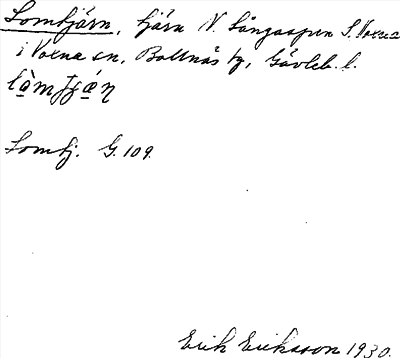 Lomtjärn, tjärn N. Långaspen S. Voxna
i Voxna sn, Bollnäs tg, Gävleb. l.
lòmʃʃǽɳ
Lomtj. G. 109.
Erik Eriksson 1930.